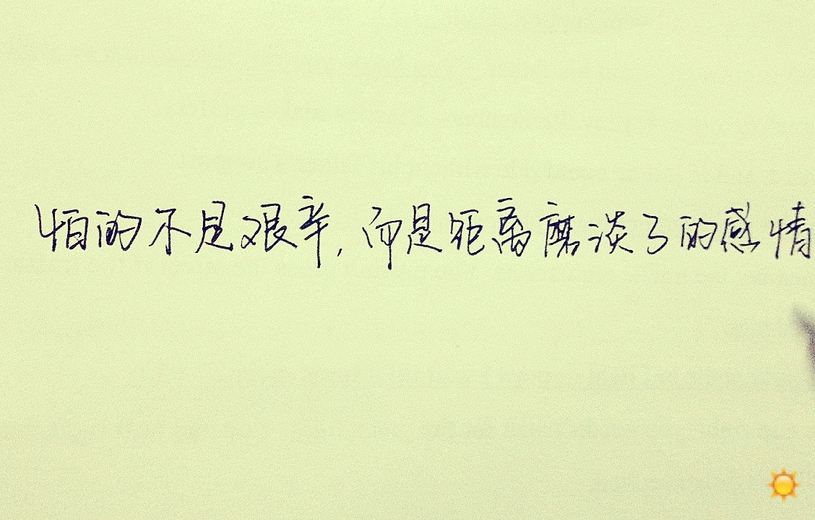 怕的不是艰辛,而是距离磨淡了的感情